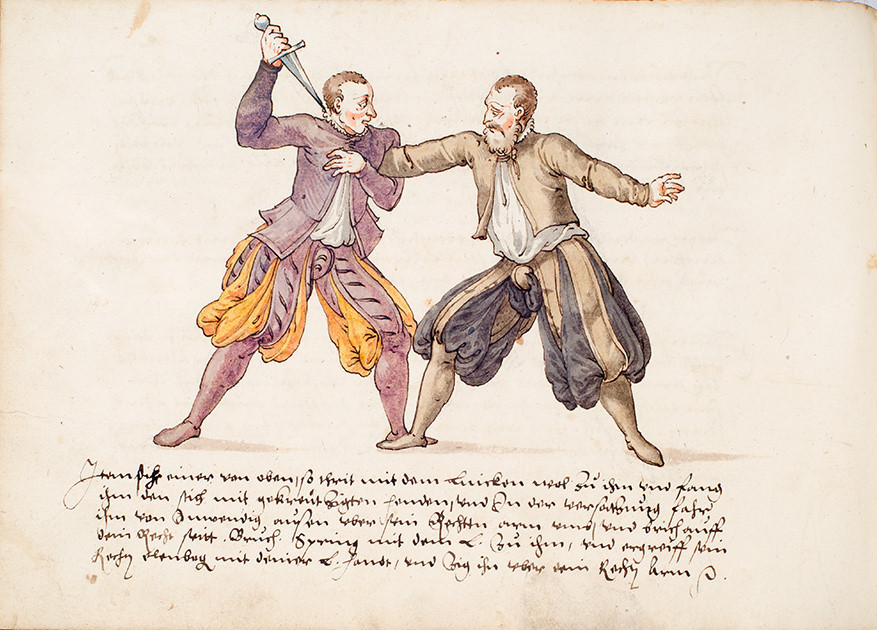 Item sticht einer von oben, so thrit mit dem Lincken wol Zu ihm vnd fang
ihm den stich mit gekreutzigten henden, vnd In der versatzung fahr
ihm von Inwendig aussen vber sein Rechten arm vmb, vnd brich auff
dein Recht seitt. Bruch. Spring mit dem L. Zu ihm, vnd ergreiff sein
Rechtn elenbog mit deiner L. handt, vnd Zig ihn vber dein Rechtn Arm